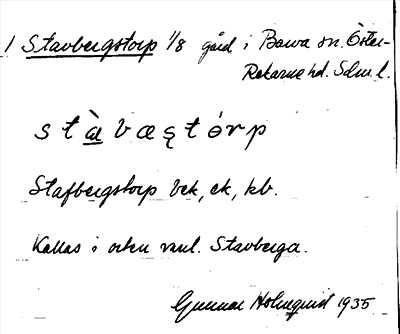 1 Stavbergstorp 1/8 gård i Barva sn. Öster-
Rekarne hd. Sdm l.
s t à b æ ę t ó r p
Stafbergstorp bek, ek, kb.
Kallas i orten vanl. Stavberga.
Gunnar Holmquist 1935